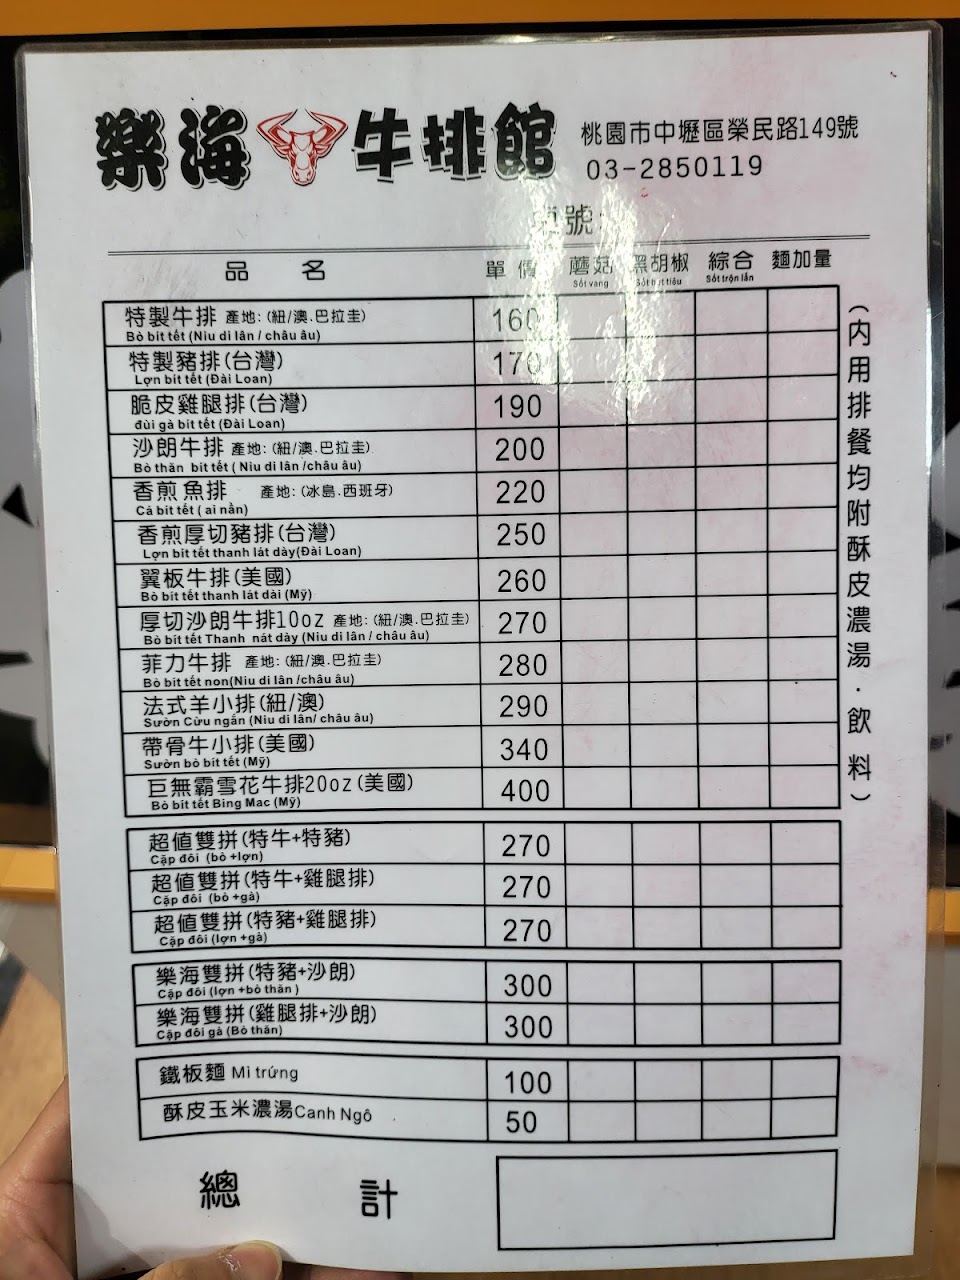 樂海牛排館
桃園市中壢區榮民路149號
03-2850119
桌號:
品名 單價 蘑菇 黑胡椒 綜合 麵加量
Sốt vang Sốt hạt tiêu Sốt trộn lẫn
特製牛排 產地:(紐/澳.巴拉圭) 160
Bò bít tết (Niu di lân / châu âu)
特製豬排(台灣) 170
Lợn bít tết (Đài Loan)
脆皮雞腿排(台灣) 190
đùi gà bít tết (Đài Loan)
沙朗牛排 產地:(紐/澳.巴拉圭) 200
Bò thăn bít tết ( Niu di lân /châu âu)
香煎魚排 產地:(冰島.西班牙) 220
Cá bít tết ( ai nần)
香煎厚切豬排(台灣) 250
Lợn bít tết thanh lát dày(Đài Loan)
翼板牛排(美國) 260
Bò bít tết thanh lát dài (Mỹ)
厚切沙朗牛排10oz 產地:(紐/澳.巴拉圭) 270
Bò bít tết Thanh nát dày (Niu di lân / châu âu)
菲力牛排 產地:(紐/澳.巴拉圭) 280
Bò bít tết non(Niu di lân /châu âu)
法式羊小排(紐/澳) 290
Sườn Cừu ngắn (Niu di lân/ châu âu)
帶骨牛小排(美國) 340
Sườn bò bít tết (Mỹ)
巨無霸雪花牛排20oz(美國) 400
Bò bít tết Bing Mac (Mỹ)
超值雙拼(特牛+特豬) 270
Cặp đôi (bò +lợn)
超值雙拼(特牛+雞腿排) 270
Cặp đôi (bò +gà)
超值雙拼(特豬+雞腿排) 270
Cặp đôi (lợn +gà)
樂海雙拼(特豬+沙朗) 300
Cặp đôi (lợn +bò thăn )
樂海雙拼(雞腿排+沙朗) 300
Cặp đôi gà (Bò thăn)
鐵板麵 Mì trứng 100
酥皮玉米濃湯Canh Ngô 50
總計
(內用排餐均附酥皮濃湯.飲料)